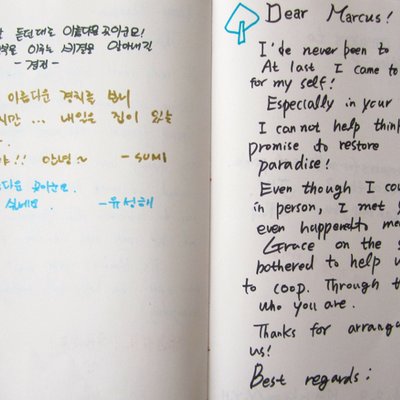 듣던대로 아름다운 곳이군요!
이루는
- 경진 -
아름다운 경치를 보니
지만 ... 내일은 집이 있는
!! 안녕~ - SUMI
곳이군요
- 유성해
Dear Marcus!
I'de never been to
At last I came to
for my self!
Especially in your
I cannot help think
promise to restore
paradise!
Even though I cou
in person, I met
even happened to me
Grace on the
bothered to help
to coop. Through t
who you are.
Thanks for arrang
us!
Best regards: